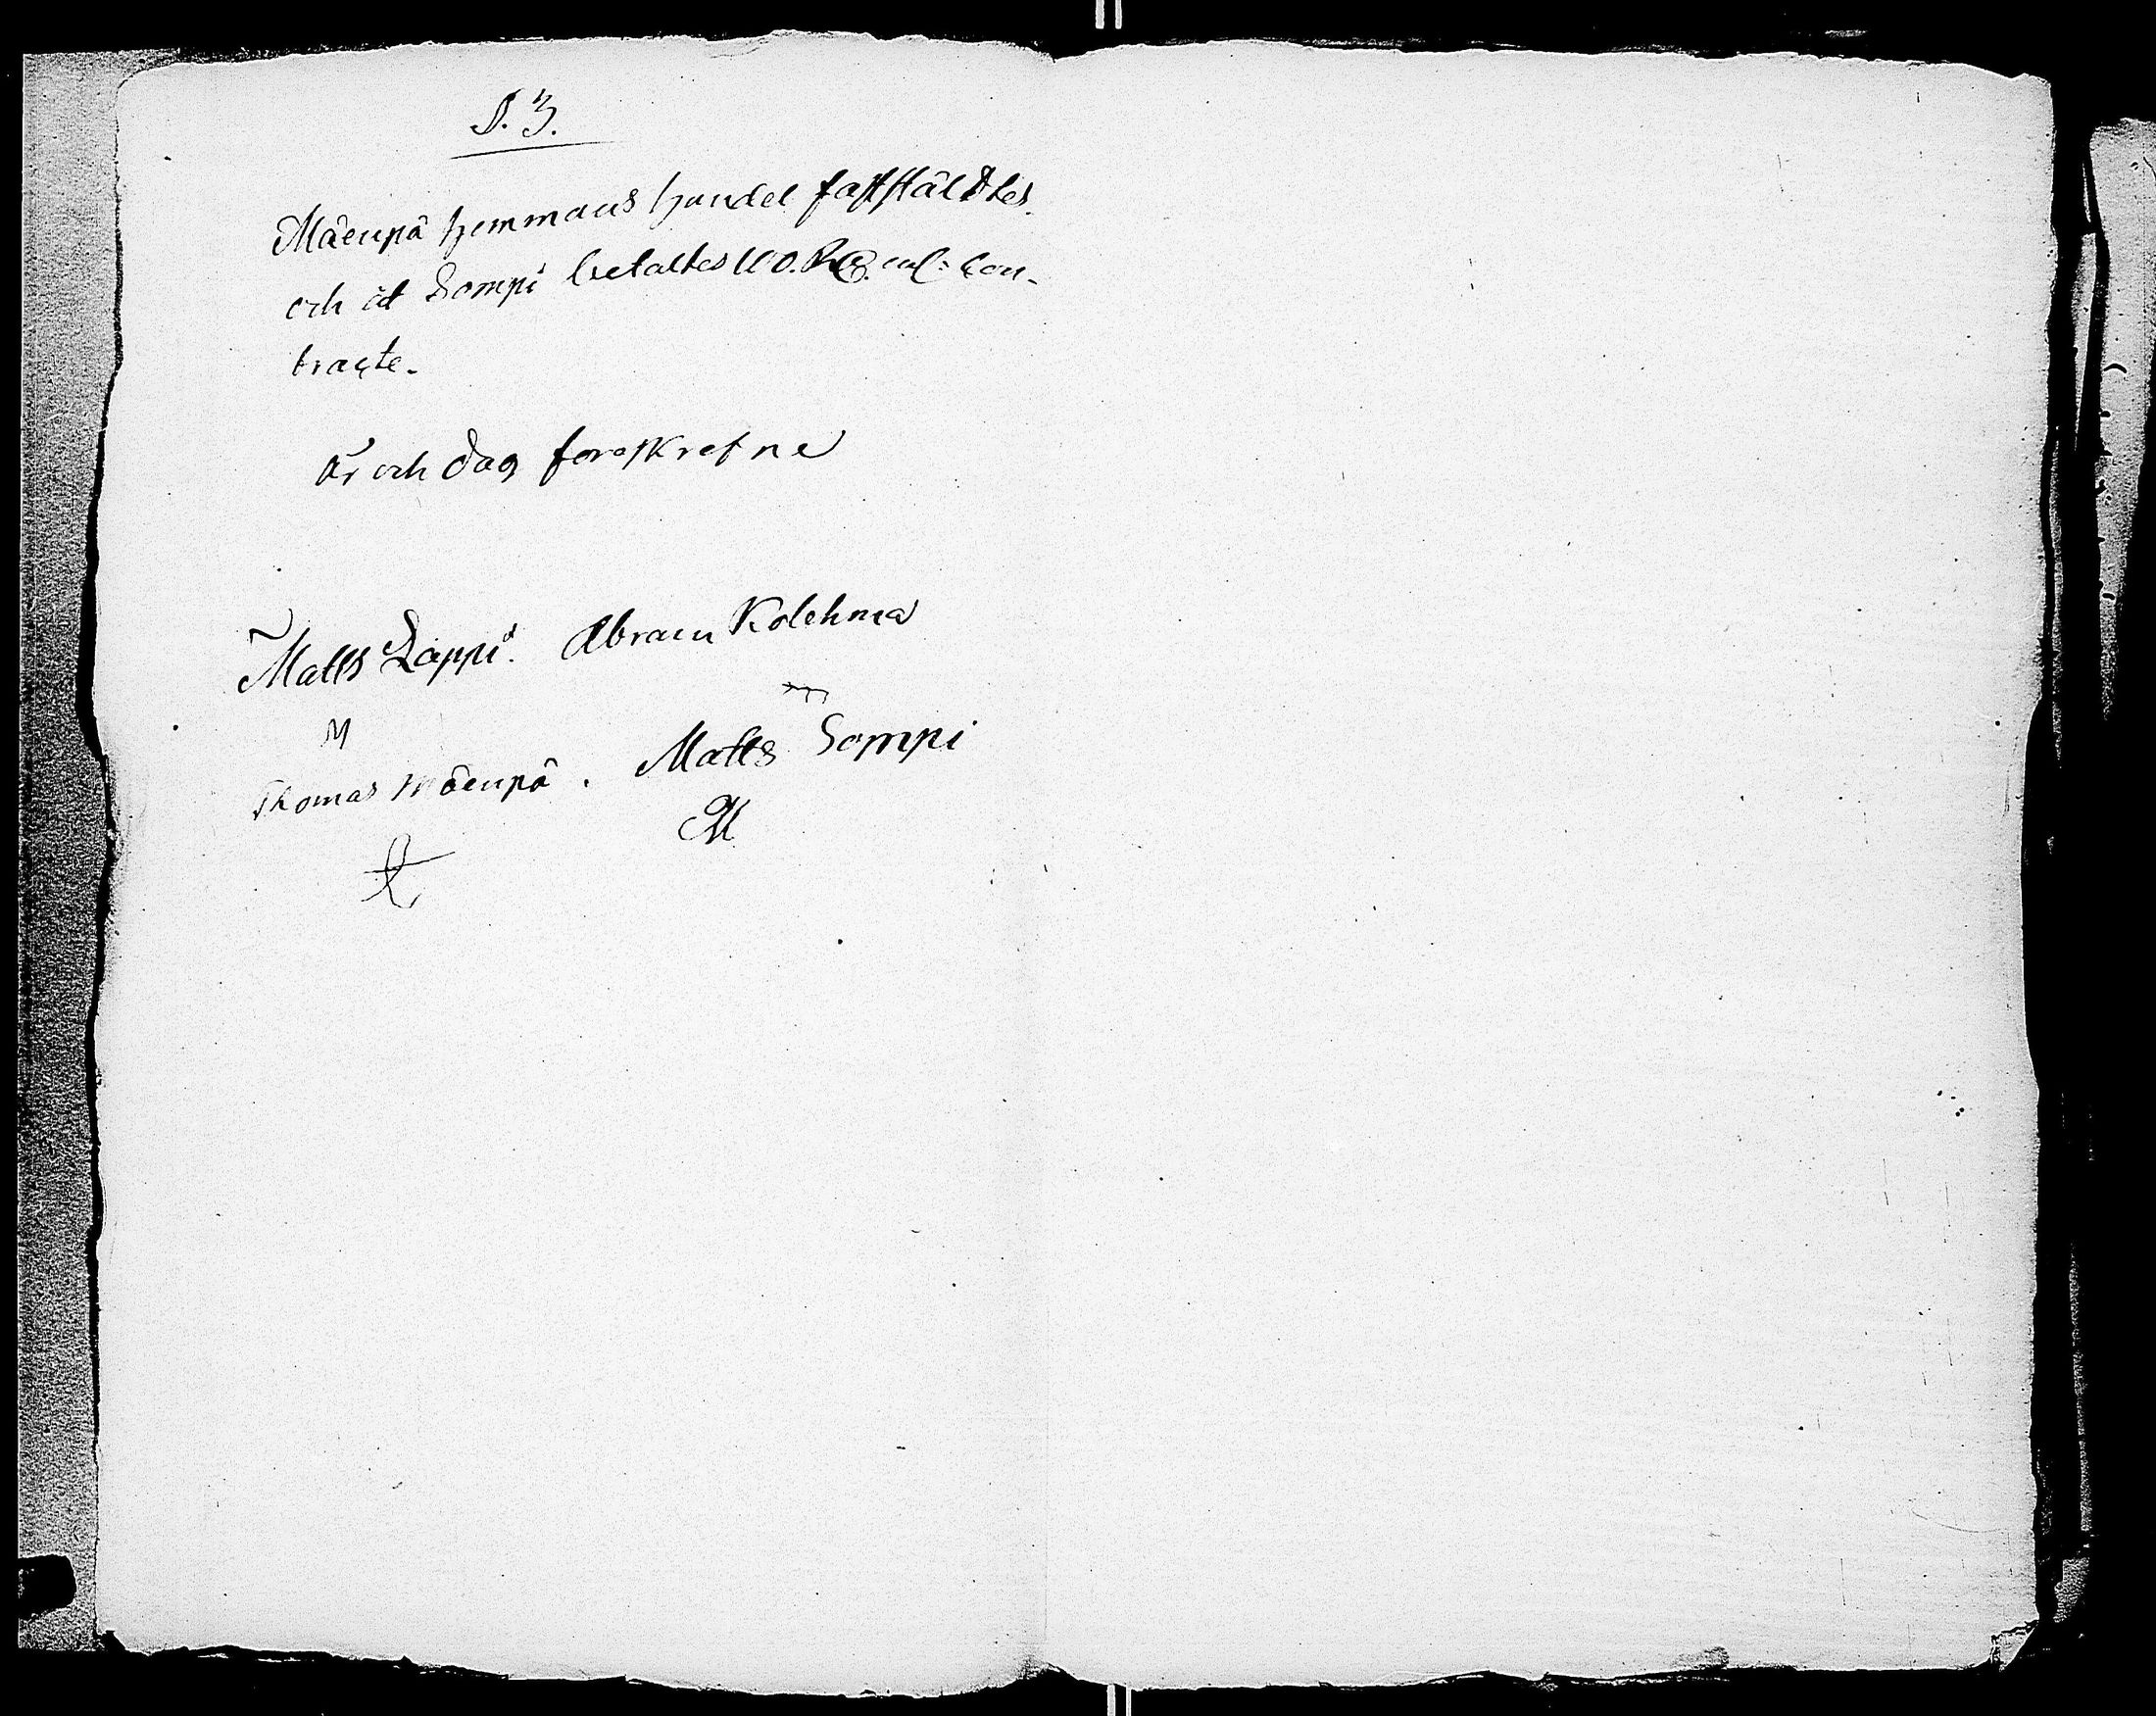 §. 3.
Mäenpä hemmans handel fastställdtes
och åt Sompi betaltes 110. Rd. enl: Con-
tracte.
År och dag föreskrefne
Matts Lappi. Abram Kolehma
M
Thomas Mäenpä. Matts Sompi
M